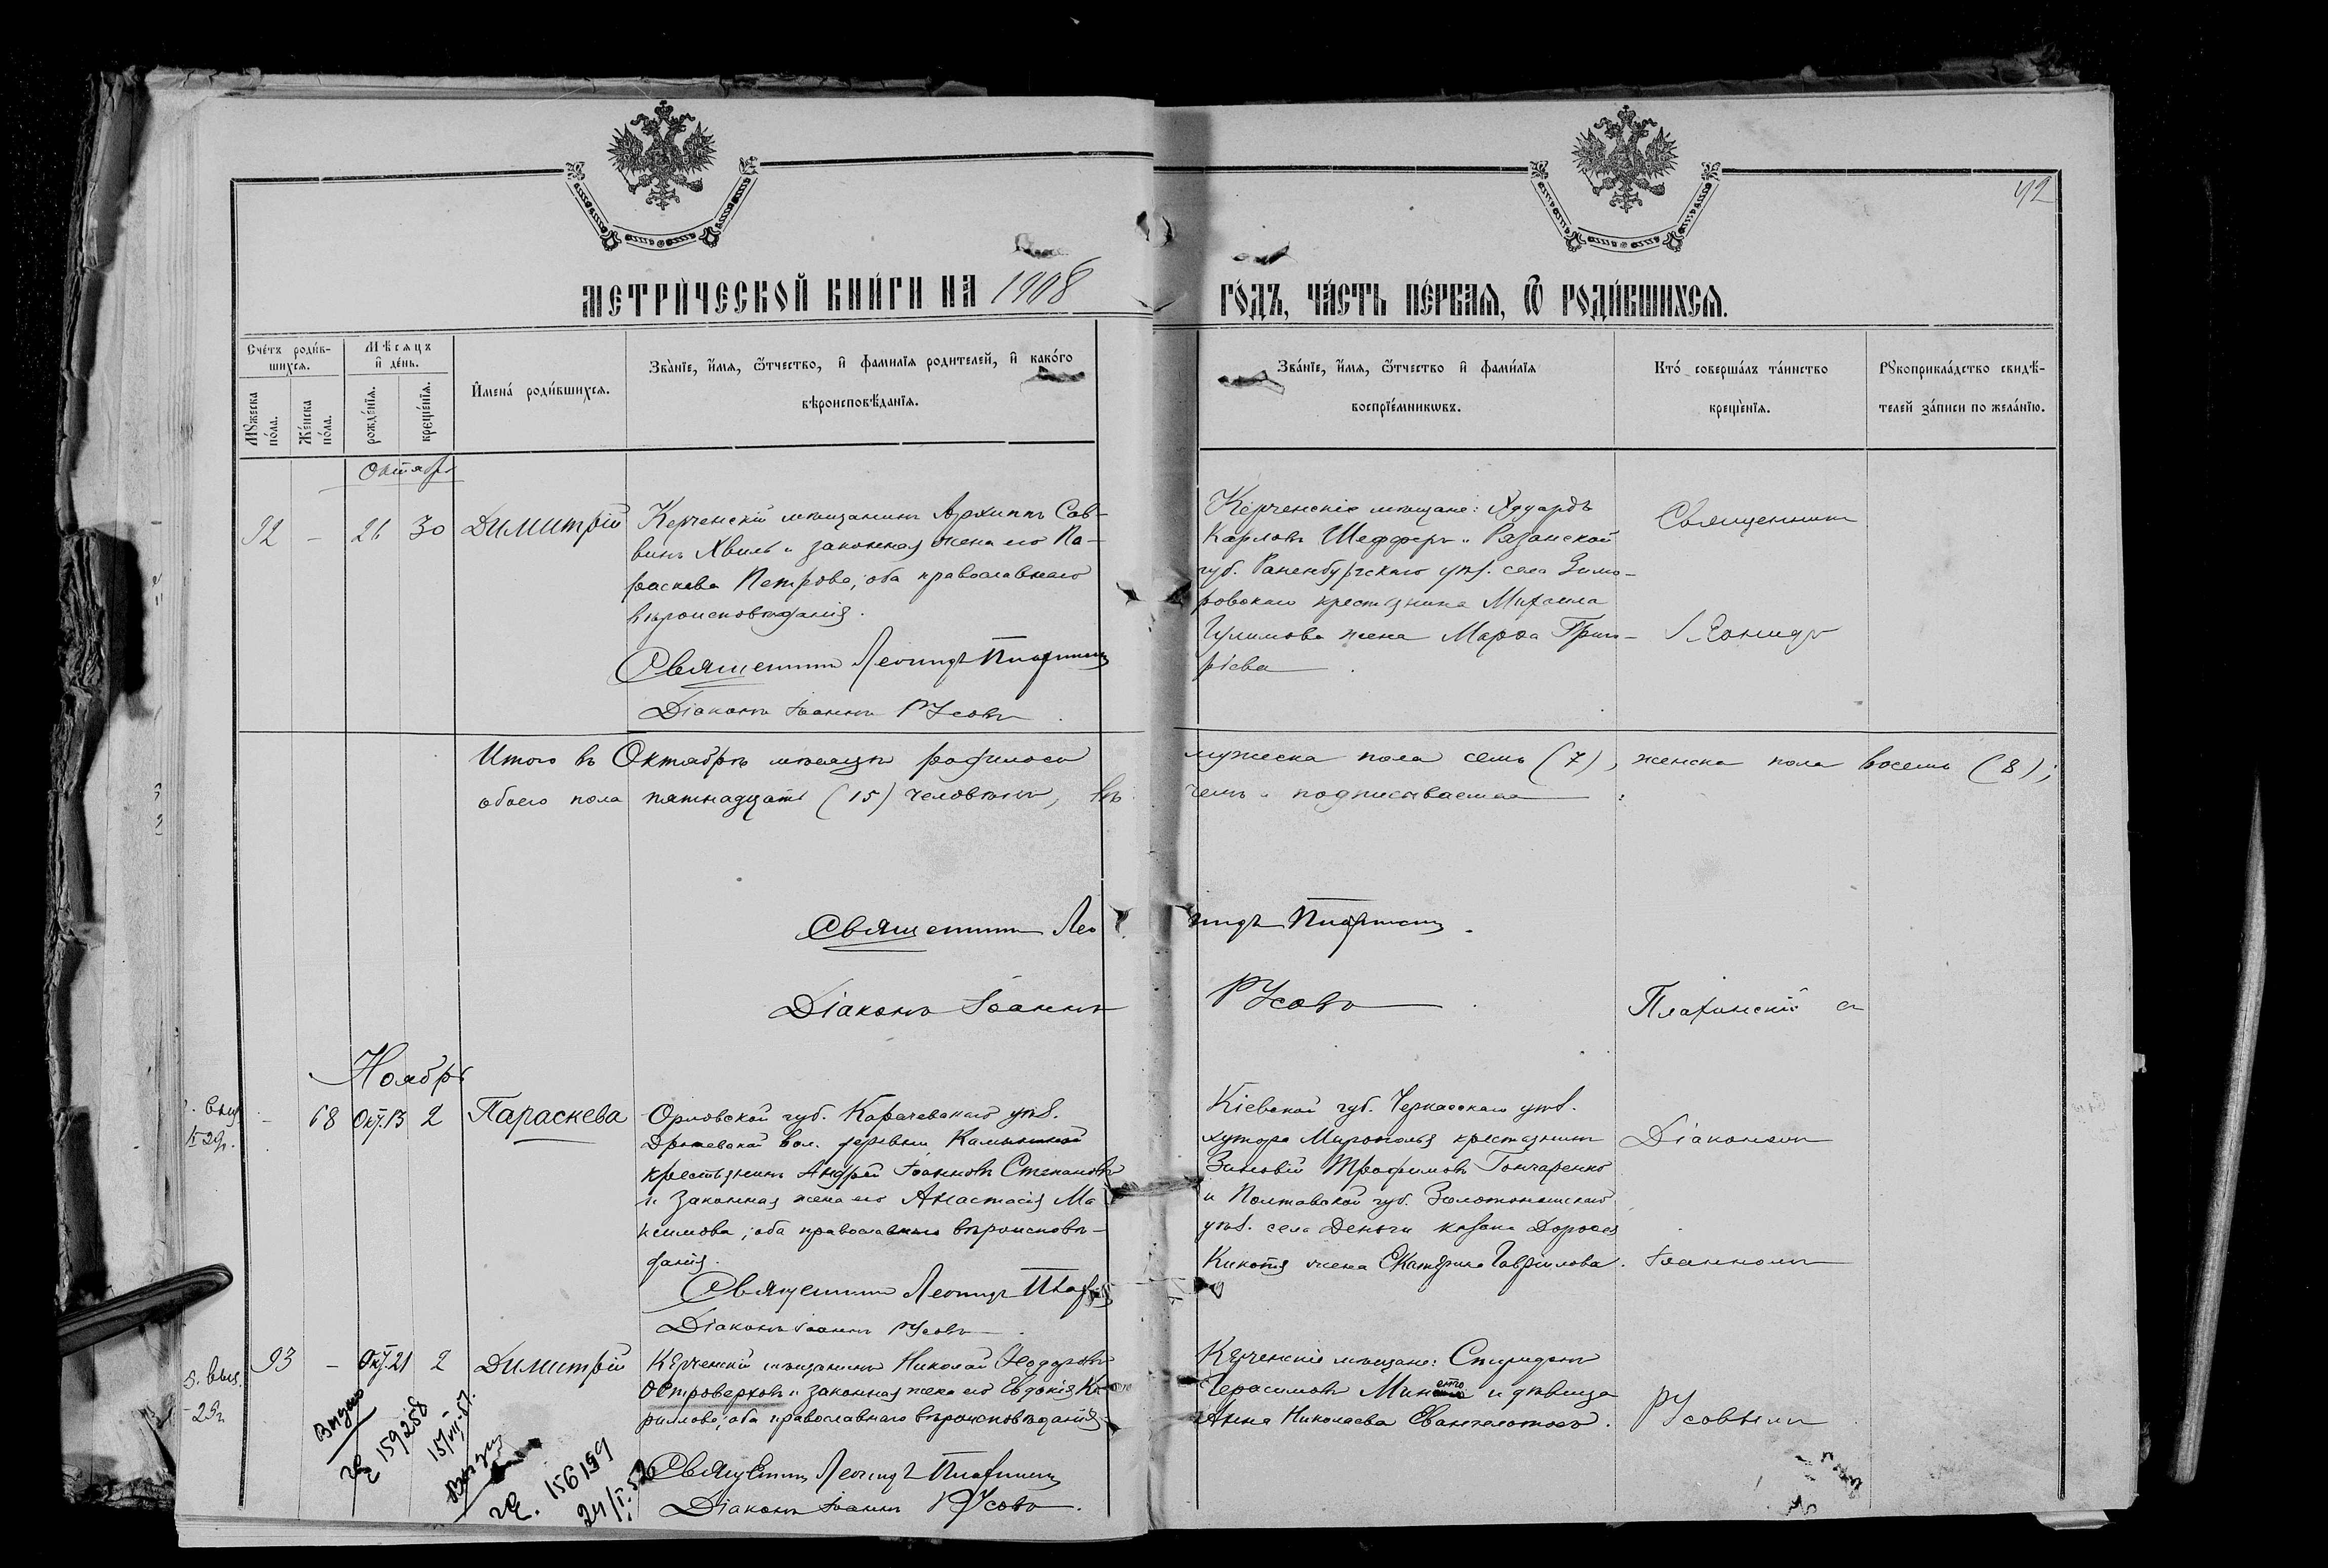 92
МЕТРИ́ЧЕСКОЙ КНИ́ГИ НА 1908
ГО́ДЪ, ЧА́СТЬ ПЕ́РВАЯ, Ѿ РОДИ́ВШИХСЯ.
Сче́тъ роди́в-
шихся.
Мѣ́сяцъ
и҆ де́нь.
Мꙋ́жеска
по́ла.
Же́нска
по́ла.
рожде́нїя.
креще́нїя.
И҆мена́ роди́вшихся.
Зва́нїе, и҆́мя, ѻ҆́тчество, и҆ фами́лїя родителей, и҆ како́го
вѣроисповѣ́данїя.
Зва́нїе, и҆́мя, ѻ҆́тчество и҆ фами́лїя
воспрїе́мникѡвъ.
Кто́ соверша́лъ та́инство
креще́нїя.
Рꙋкоприкла́дство свидѣ́-
телей за́писи по жела́нїю.
Октябрь
92 – 26 30 Димитрій
Керченскій мѣщанинъ Архиппъ Сав-
винъ Хвиль и законная жена его Па-
раскева Петрова, оба православнаго
вѣроисповѣданія.
Священникъ Леонидъ
Діаконъ Іоаннъ Русовъ
Керченскіе мѣщане: Эдуардъ
Карловъ Шефферъ и Рязанской
губ. Раненбургскаго уѣз. села Зимо-
ровскаго крестьянина Михаила
жена Марѳа Григо-
рієва
Священникъ
Леонидъ
Итого въ Октябрѣ мѣсяцѣ родилось мужеска пола семь (7), женска пола восемь (8);
обоего пола пятнадцать (15) человѣкъ, въ чемъ и подписываемся
Священникъ Леонидъ
Діаконъ Іоаннъ Русовъ
и
Ноябрь
68 Окт. 13 2 Параскева
Орловской губ. Карачевскаго уѣз.
вол. деревни
крестьянинъ Андрей Іоанновъ Степановъ
и законная жена его Анастасія Ма
ксимова, оба православнаго вѣроисповѣ-
данія.
Священникъ Леонидъ
Діаконъ Іоаннъ Русовъ
Кіевской губ. Черкасскаго уѣз.
хутора Мирополья крестьянинъ
Зиновій Трофимовъ Гончаренко
и Полтавской губ. Золотоношскаго
уѣз. села Деньги козака Дороѳея
жена Екатерина Гаврилова.
Діакономъ
Іоанномъ
93 – Окт. 21 2 Димитрій
Керченскій мѣщанинъ Николай Ѳеодоровъ
Островерховъ и законная жена его Евдокія Ки-
риллова, оба православнаго вѣроисповѣданія.
Священникъ Леонидъ
Діаконъ Іоаннъ Русовъ.
Керченскіе мѣщане: Спиридонъ
Герасимовъ и дѣвица
Анна Николаева
Русовымъ
159258
15/VII-57.
156199
24/I-52